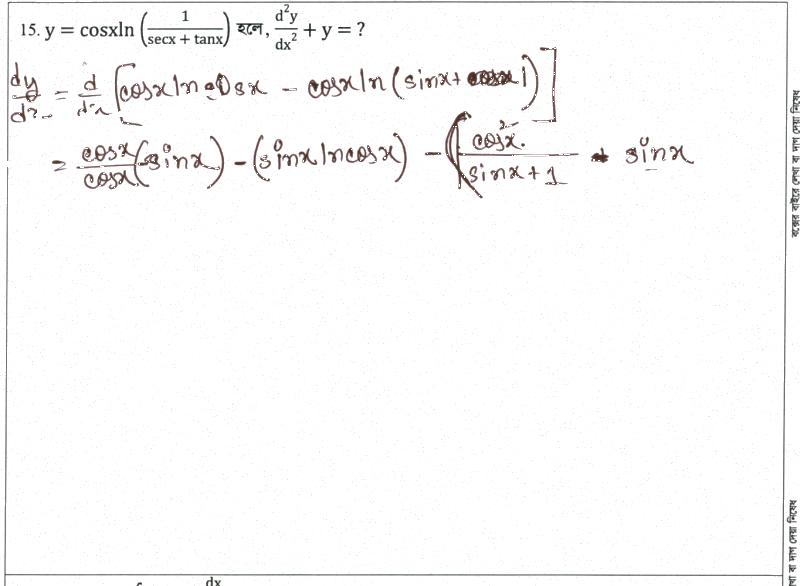 15. y = cosxln (1/(secx + tanx)) হলে, d²y/dx² + y = ?
dy/dx = d/dx [cosx ln cosx - cosx ln (sinx + 1)]
= cosx/cosx (-sinx) - (sinx ln cosx) - (cos²x/(sinx + 1) - sinx
বক্সের বাইরে লেখা বা দাগ দেয়া নিষেধ
বা দাগ দেয়া নিষেধ
dx